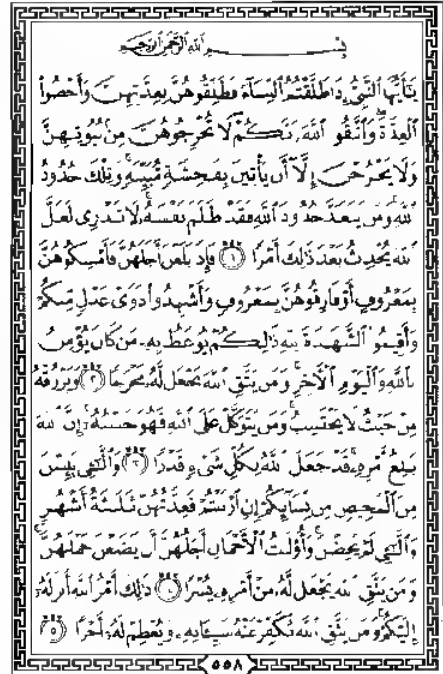 بِسْمِ ٱللَّهِ ٱلرَّحْمَٰنِ ٱلرَّحِيمِ
يَٰٓأَيُّهَا ٱلنَّبِيُّ إِذَا طَلَّقْتُمُ ٱلنِّسَآءَ فَطَلِّقُوهُنَّ لِعِدَّتِهِنَّ وَأَحْصُوا۟
ٱلْعِدَّةَ ۖ وَٱتَّقُوا۟ ٱللَّهَ رَبَّكُمْ ۖ لَا تُخْرِجُوهُنَّ مِنۢ بُيُوتِهِنَّ
وَلَا يَخْرُجْنَ إِلَّآ أَن يَأْتِينَ بِفَٰحِشَةٍ مُّبَيِّنَةٍ ۚ وَتِلْكَ حُدُودُ
ٱللَّهِ ۚ وَمَن يَتَعَدَّ حُدُودَ ٱللَّهِ فَقَدْ ظَلَمَ نَفْسَهُۥ ۚ لَا تَدْرِى لَعَلَّ
ٱللَّهَ يُحْدِثُ بَعْدَ ذَٰلِكَ أَمْرًا ١ فَإِذَا بَلَغْنَ أَجَلَهُنَّ فَأَمْسِكُوهُنَّ
بِمَعْرُوفٍ أَوْ فَارِقُوهُنَّ بِمَعْرُوفٍ وَأَشْهِدُوا۟ ذَوَىْ عَدْلٍ مِّنكُمْ
وَأَقِيمُوا۟ ٱلشَّهَٰدَةَ لِلَّهِ ۚ ذَٰلِكُمْ يُوعَظُ بِهِۦ مَن كَانَ يُؤْمِنُ
بِٱللَّهِ وَٱلْيَوْمِ ٱلْءَاخِرِ ۚ وَمَن يَتَّقِ ٱللَّهَ يَجْعَل لَّهُۥ مَخْرَجًا ٢ وَيَرْزُقْهُ
مِنْ حَيْثُ لَا يَحْتَسِبُ ۚ وَمَن يَتَوَكَّلْ عَلَى ٱللَّهِ فَهُوَ حَسْبُهُۥٓ ۚ إِنَّ ٱللَّهَ
بَٰلِغُ أَمْرِهِۦ ۚ قَدْ جَعَلَ ٱللَّهُ لِكُلِّ شَىْءٍ قَدْرًا ٣ وَٱلَّٰٓـِٔى يَئِسْنَ
مِنَ ٱلْمَحِيضِ مِن نِّسَآئِكُمْ إِنِ ٱرْتَبْتُمْ فَعِدَّتُهُنَّ ثَلَٰثَةُ أَشْهُرٍ
وَٱلَّٰٓـِٔى لَمْ يَحِضْنَ ۚ وَأُو۟لَٰتُ ٱلْأَحْمَالِ أَجَلُهُنَّ أَن يَضَعْنَ حَمْلَهُنَّ ۚ
وَمَن يَتَّقِ ٱللَّهَ يَجْعَل لَّهُۥ مِنْ أَمْرِهِۦ يُسْرًا ٤ ذَٰلِكَ أَمْرُ ٱللَّهِ أَنزَلَهُۥٓ
إِلَيْكُمْ ۚ وَمَن يَتَّقِ ٱللَّهَ يُكَفِّرْ عَنْهُ سَيِّـَٔاتِهِۦ وَيُعْظِمْ لَهُۥٓ أَجْرًا ٥
٥٥٨